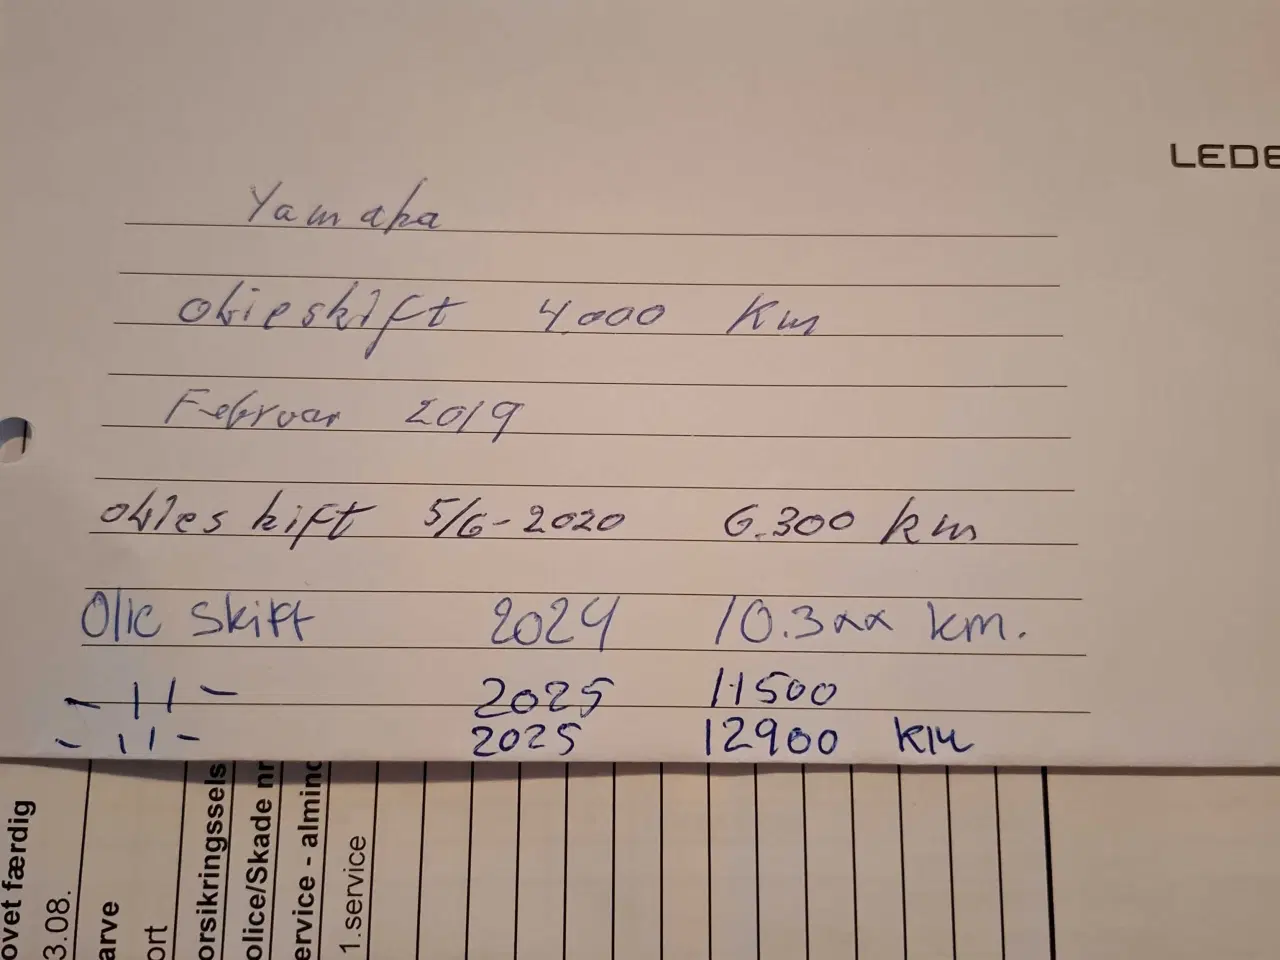 LEDE
Yamaha
olieskift 4.000 Km
Februar 2019
olieskift 5/6-2020 6.300 km
Olie skift 2024 10.3xx km.
-11- 2025 11500
-11- 2025 12900 km
ovet færdig
3.08.
arve
ort
orsikringssels
olice/Skade nr
ervice - alminc
1.service